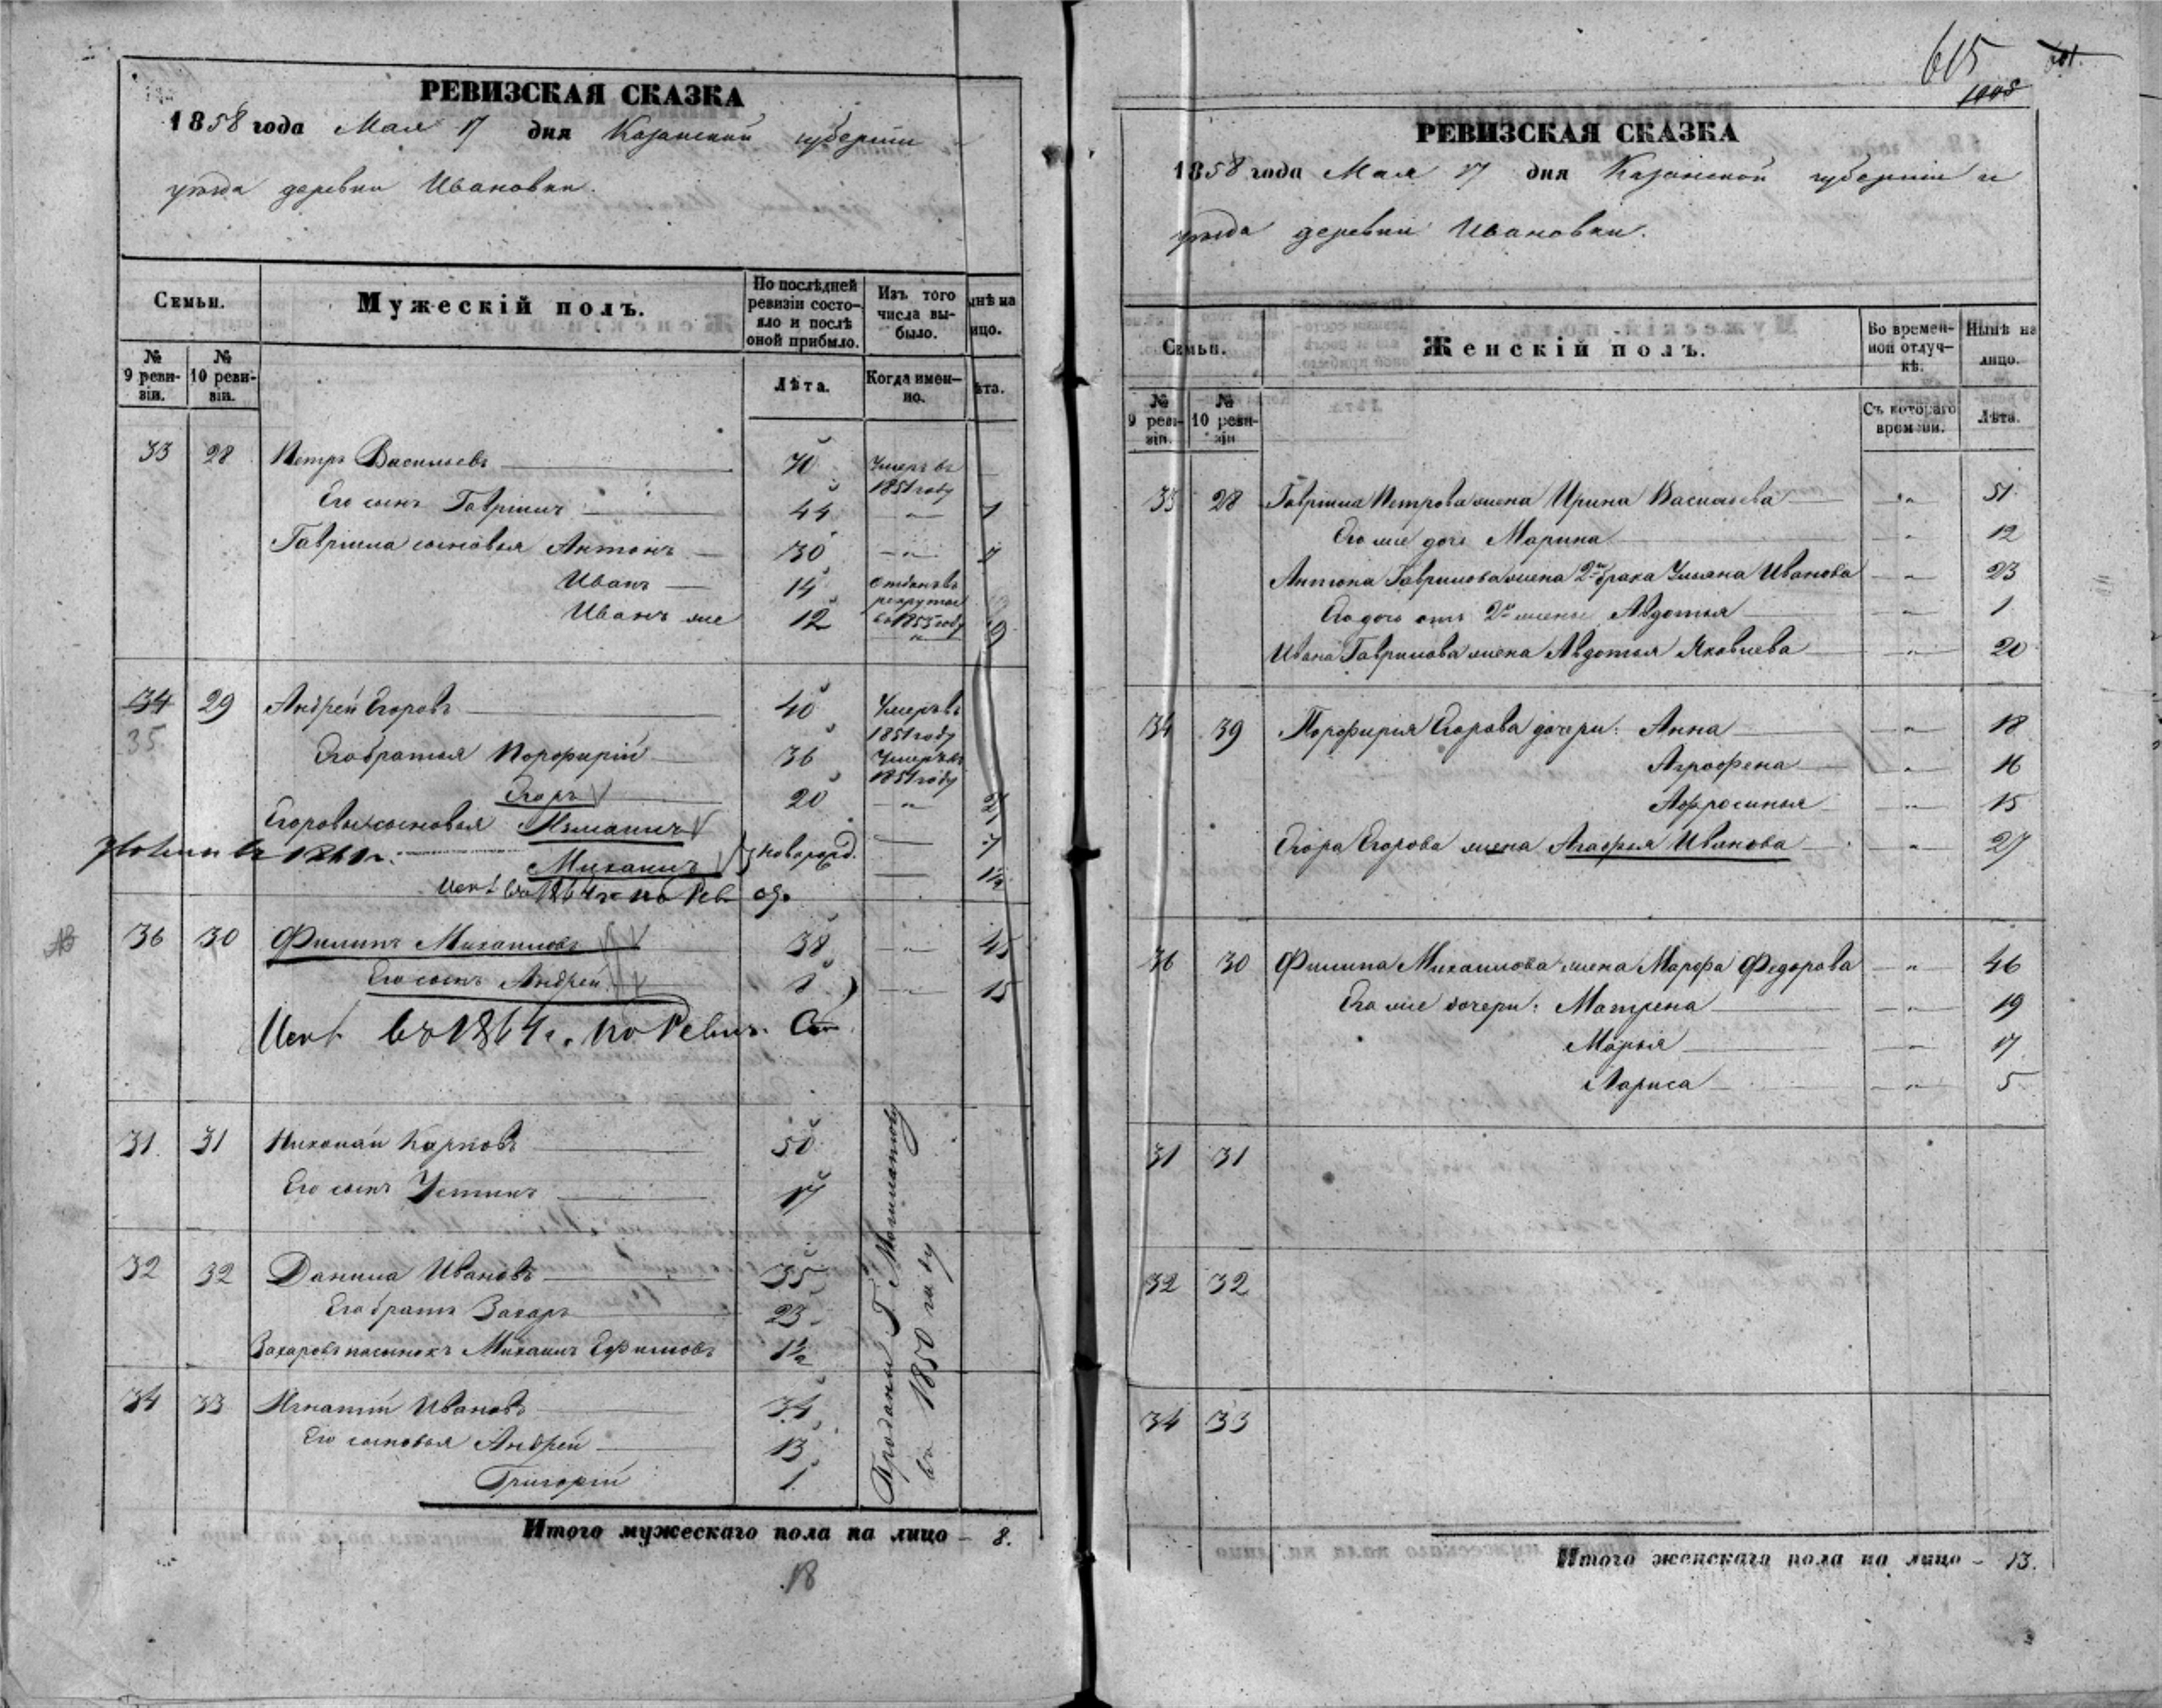 РЕВИЗСКАЯ СКАЗКА
1858 года Мая 17 дня Казанской губерніи
уезда деревни Ивановки.
Семьи.
Мужескій полъ.
По послѣдней ревизіи состояло и послѣ оной прибыло.
Изъ того числа выбыло.
ынѣ на ицо.
№ 9 ревизіи.
№ 10 ревизіи.
Лѣта.
Когда именно.
ѣта.
33 28 Петръ Васильевъ 70 Умеръ въ 1851 году
Его сынъ Гавріилъ 44 - "
Гавріила сыновья Антонъ 30 - "
Иванъ 14 Отданъ въ рекруты въ 1853 году
Иванъ же 12 "
34 29 Андрей Егоровъ 40 Умеръ въ 1851 году
35
Его братья Порфирій 36 Умеръ въ 1851 году
Егоръ 20 - "
Егоровы сыновья
Михаилъ новорожд. 1½
36 30 Филиппъ Михайловъ 38 - " 45
Его сынъ Андрей 8 - " 15
въ 1864 г. по Ревиз. Ск.
31 31 Николай Карповъ 50
Его сынъ Устинъ 17
32 32 Данила Ивановъ 35
Его братъ Захаръ 23
Захаровъ пасынокъ Михаилъ Ефимовъ 1½
34 33 Игнатій Ивановъ 34
Его сыновья Андрей 13
Григорій 1
Проданы Г.
въ 1850 году
Итого мужескаго пола на лицо - 8.
18
615
РЕВИЗСКАЯ СКАЗКА
1858 года Мая 17 дня Казанской губерніи и
уезда деревни Ивановки.
Семьи.
Женскій полъ.
Во временной отлучкѣ.
Нынѣ на лицо.
№ 9 ревизіи.
№ 10 ревизіи
Съ котораго времени.
Лѣта.
33 28 Гавріила Петрова жена Ирина Васильева - " 51
Его же дочь Марина - " 12
Антона Гаврилова жена 2го брака Ульяна Иванова - " 23
Его дочь отъ 2й жены Авдотья - " 1
Ивана Гаврилова жена Авдотья Яковлева - " 20
34 39 Порфирія Егорова дочери: Анна - " 18
Аграфена - " 16
Афросинья - " 15
Егора Егорова жена Агафья Иванова - " 27
36 30 Филипа Михайлова жена Марфа Федорова - " 46
Его же дочери: Матрена - " 19
Марья - " 17
Лариса - " 5
31 31
32 32
34 33
Итого женскаго пола на лицо - 13.